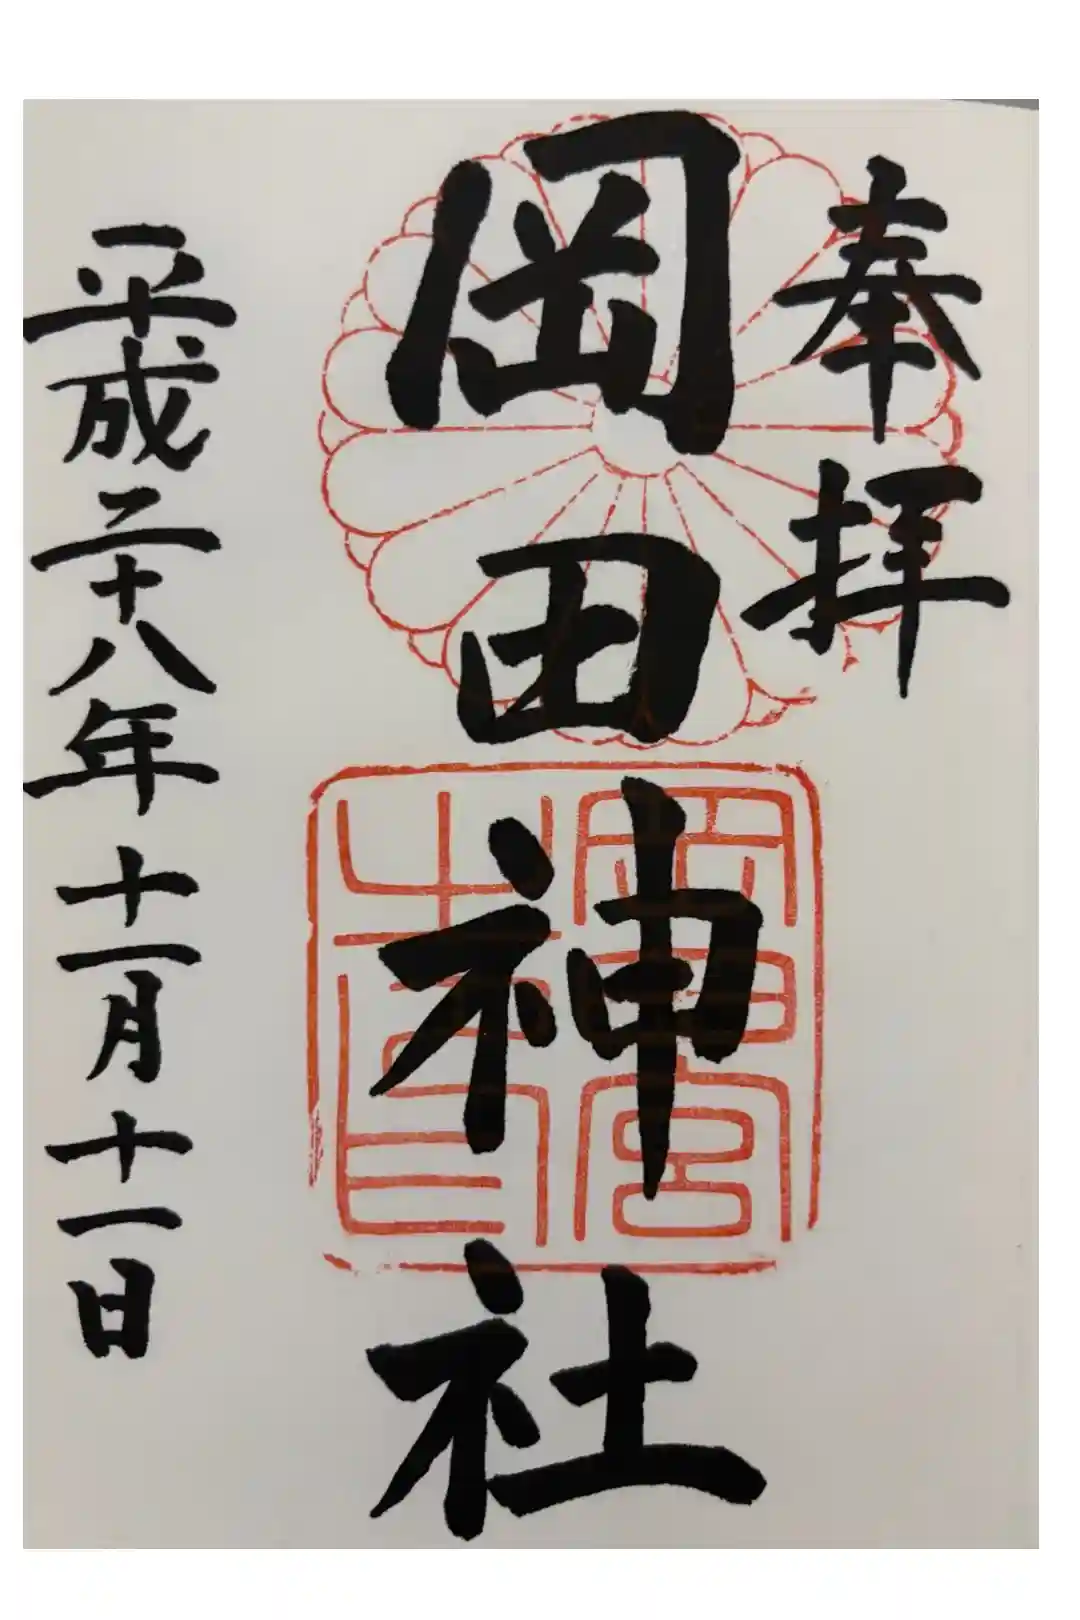 奉拝
岡田神社
平成二十八年十一月十一日